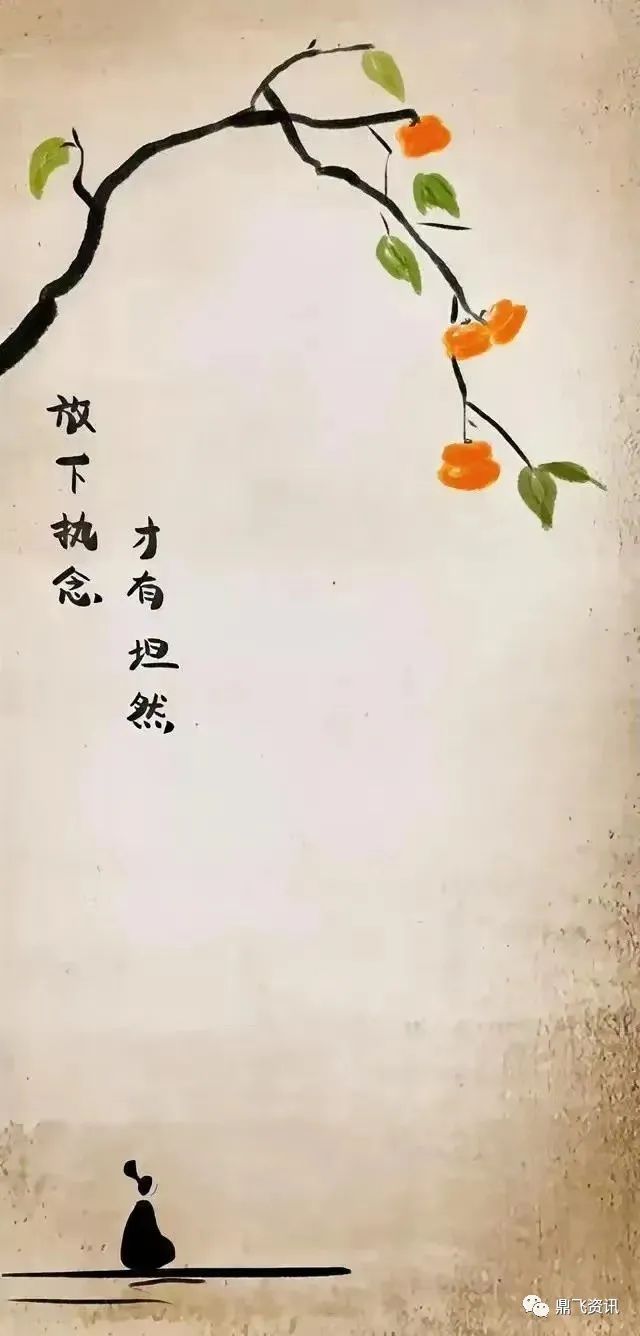 放下执念
才有坦然
鼎飞资讯